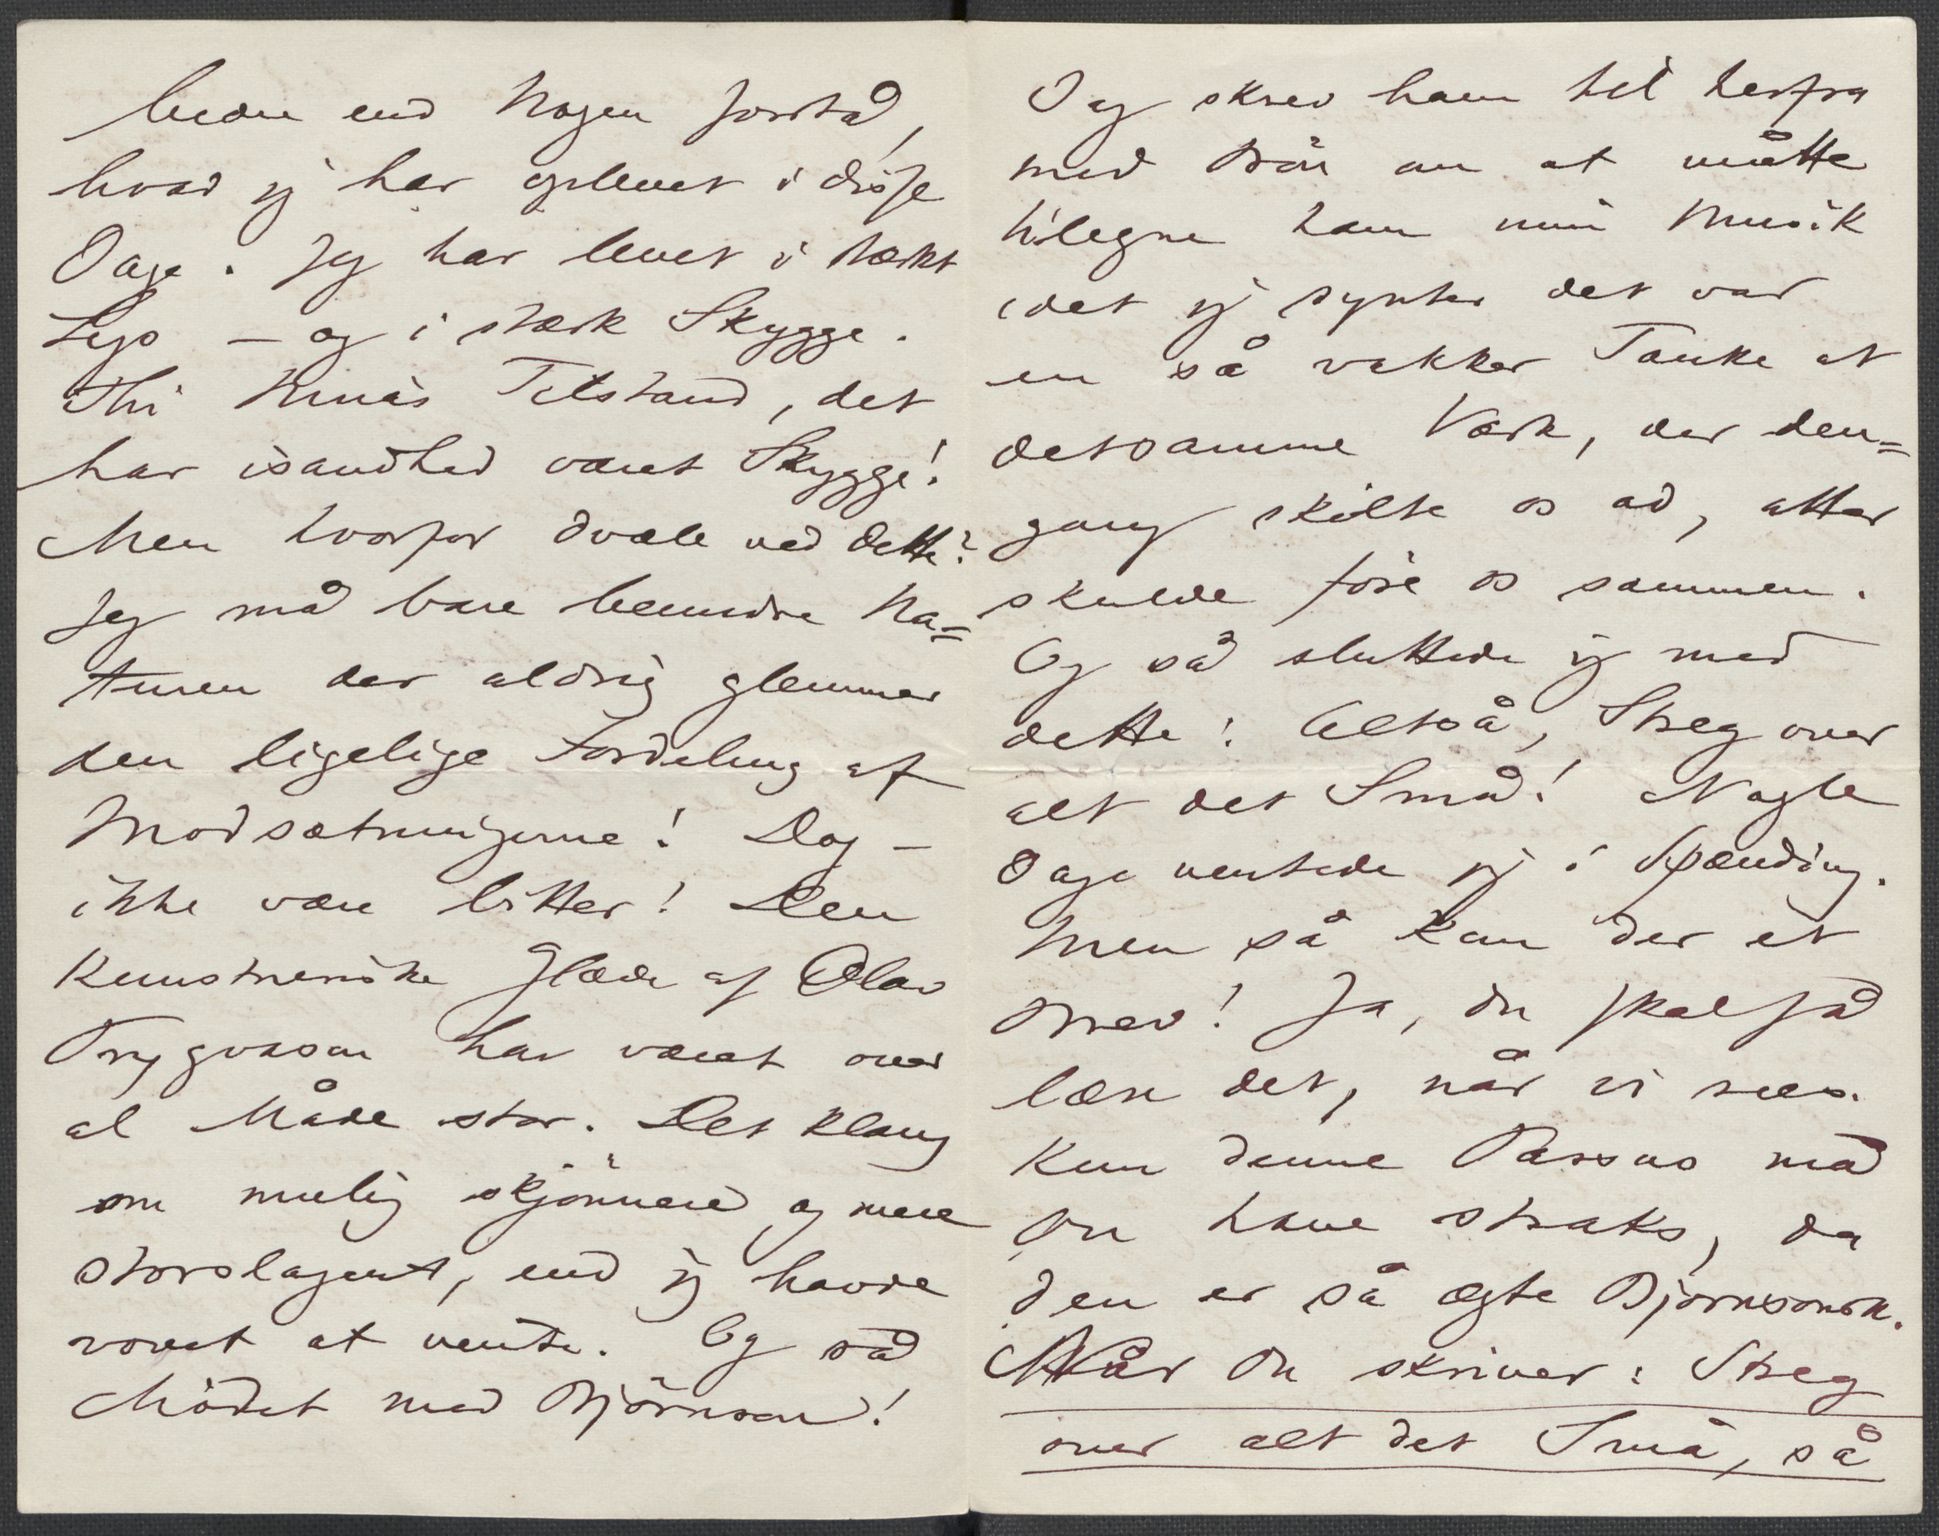 bedre end Nogen forstå,
hvad jeg har oplevet i disse
Dage. Jeg har levet i stærkt
Lys – og i stærk Skygge.
Thi Ninas Tilstand, det
har isandhed været Skygge!
Men hvorfor dvæle ved dette?
Jeg må bare beundre Na=
turen der aldrig glemmer
den ligelige Fordeling af
Modsætningerne! Dog –
ikke være bitter! Den
kunstneriske Glæde af Olav
Trygvason har været over
al Måde stor. Det klang
om mulig skjönnere og mere
storslagent, end jeg havde
vovet at vente. Og så
Mödet med Björnson!
Jeg skrev ham til herfra
med Bön om at måtte
tilegne ham min Musik
idet jeg syntes det var
en så vakker Tanke at
detsamme Værk, der den=
gang skilte os ad, atter
skulde före os sammen.
Og så sluttede jeg med
dette: Altså, Streg over
alt det Små! Nogle
Dage ventede jeg i Spænding.
Men så kom der et
Brev! Ja, Du skal få
læse det, når vi sees.
Kun denne Passus må
Du have straks, da
den er så ægte Björnsonsk.
Når Du skriver: Streg
over alt det Små, så